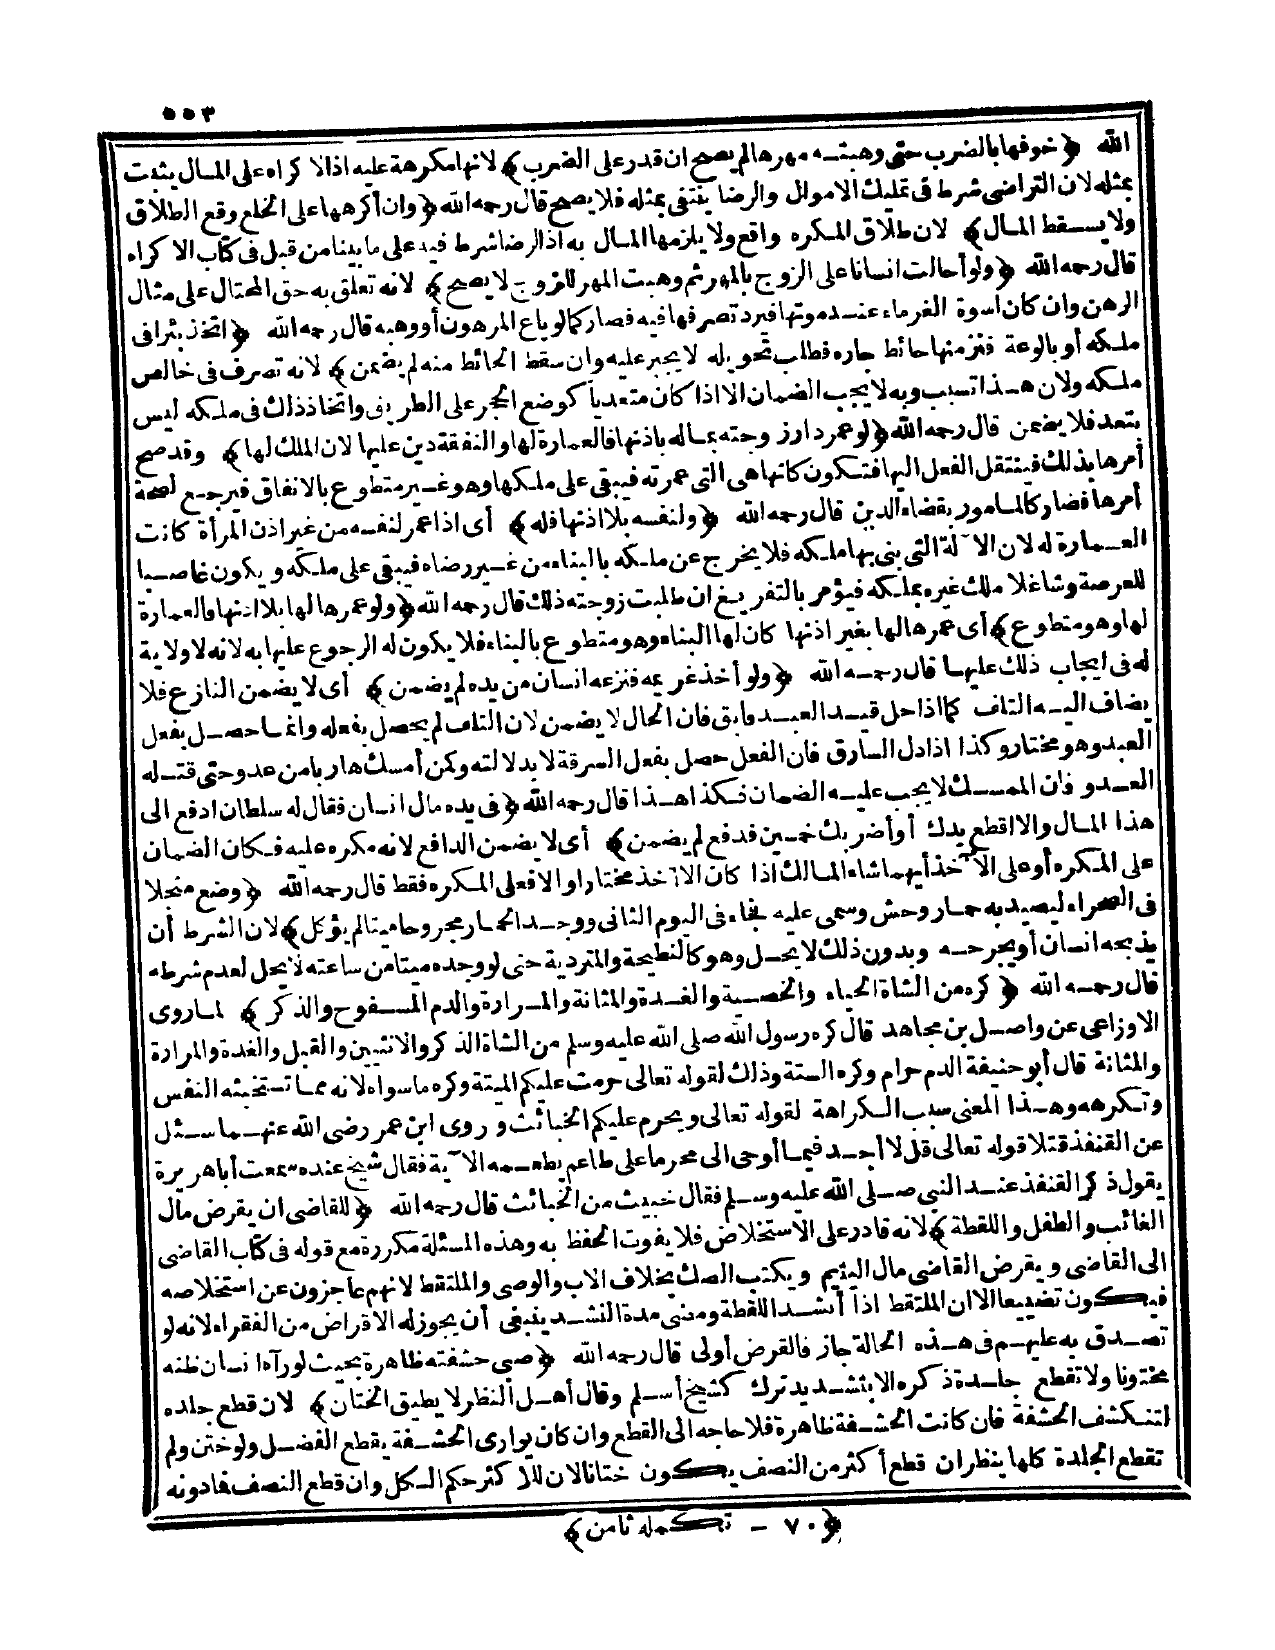 ٥٥٣
الله ﴿خوفها بالضرب حتى وهبته مهرها لم يصح ان قدر على الضرب﴾ لانها مكرهة عليه اذ الاكراه على المال يثبت
بمثله لان التراضى شرط فى تمليك الاموال والرضا ينتفى بمثله فلا يصح قال رحمه الله ﴿وان أكرهها على الخلع وقع الطلاق
ولا يسقط المال﴾ لان طلاق المكره واقع ولا يلزمها المال به اذ الرضا شرط فيه على ما بينا من قبل فى كتاب الاكراه
قال رحمه الله ﴿ولو أحالت انسانا على الزوج بالمهر ثم وهبت المهر للزوج لا يصح﴾ لانه تعلق به حق المحتال على مثال
الرهن وان كان اسوة الغرماء عند موتها فيرد تصرفها فيه فصار كما لو باع المرهون أو وهبه قال رحمه الله ﴿اتخذ بئرا فى
ملكه أو بالوعة فنز منها حائط جاره فطلب تحويله لا يجبر عليه وان سقط الحائط منه لم يضمن﴾ لانه تصرف فى خالص
ملكه ولان هذا تسبب وبه لا يجب الضمان الا اذا كان متعديا كوضع الحجر على الطريق واتخاذ ذلك فى ملكه ليس
بتعد فلا يضمن قال رحمه الله ﴿لو عمر دار زوجته بماله باذنها فالعمارة لها والنفقة دين عليها لان الملك لها﴾ وقد صح
أمرها بذلك فينتقل الفعل اليها فتكون كانها هى التى عمرته فيبقى على ملكها وهو غير متطوع بالانفاق فيرجع لصحة
أمرها فصار كالمامور بقضاء الدين قال رحمه الله ﴿ولنفسه بلا اذنها فله﴾ أى اذا عمر لنفسه من غير اذن المرأة كانت
العمارة له لان الآلة التى بنى بها ملكه فلا يخرج عن ملكه بالبناء من غير رضاه فيبقى على ملكه ويكون غاصبا
للعرصة وشاغلا ملك غيره بملكه فيؤمر بالتفريغ ان طلبت زوجته ذلك قال رحمه الله ﴿ولو عمرها لها بلا اذنها فالعمارة
لها وهو متطوع﴾ أى عمرها لها بغير اذنها كان لها البناء وهو متطوع بالبناء فلا يكون له الرجوع عليها به لانه لا ولاية
له فى ايجاب ذلك عليها قال رحمه الله ﴿ولو أخذ غريمه فنزعه انسان من يده لم يضمن﴾ أى لا يضمن النازع فلا
يضاف اليه التلف كما اذا حل قيد العبد فابق فان الحال لا يضمن لان التلف لم يحصل بفعله وانما حصل بفعل
العبد وهو مختار وكذا اذا دل السارق فان الفعل حصل بفعل السرقة لا بدلالته وكمن أمسك هاربا من عدو حتى قتله
العدو فان الممسك لا يجب عليه الضمان فكذا هذا قال رحمه الله ﴿فى يده مال انسان فقال له سلطان ادفع الى
هذا المال والا اقطع يدك أو أضربك خمسين فدفع لم يضمن﴾ أى لا يضمن الدافع لانه مكره عليه فكان الضمان
على المكره أو على الآخذ أيهما شاء المالك اذا كان الآخذ مختارا والا فعلى المكره فقط قال رحمه الله ﴿وضع منجلا
فى الصحراء ليصيد به حمار وحش وسمى عليه فجاء فى اليوم الثانى ووجد الحمار مجروحا ميتا لم يؤكل﴾ لان الشرط أن
يذبحه انسان أو يجرحه وبدون ذلك لا يحل وهو كالنطيحة والمتردية حتى لو وجده ميتا من ساعته لا يحل لعدم شرطه
قال رحمه الله ﴿كره من الشاة الحياء والخصية والغدة والمثانة والمرارة والدم المسفوح والذكر﴾ لما روى
الاوزاعى عن واصل بن مجاهد قال كره رسول الله صلى الله عليه وسلم من الشاة الذكر والانثيين والقبل والغدة والمرارة
والمثانة قال أبو حنيفة الدم حرام وكره الستة وذلك لقوله تعالى حرمت عليكم الميتة وكره ما سواه لانه مما تستخبثه النفس
وتكرهه وهذا المعنى سبب الكراهة لقوله تعالى ويحرم عليكم الخبائث وروى ابن عمر رضى الله عنهما سئل
عن القنفذ فتلا قوله تعالى قل لا أجد فيما أوحى الى محرما على طاعم يطعمه الآية فقال شيخ عنده سمعت أبا هريرة
يقول ذكر القنفذ عند النبى صلى الله عليه وسلم فقال خبيث من الخبائث قال رحمه الله ﴿للقاضى ان يقرض مال
الغائب والطفل واللقطة﴾ لانه قادر على الاستخلاص فلا يفوت الحفظ به وهذه المسئلة مكررة مع قوله فى كتاب القاضى
الى القاضى ويقرض القاضى مال اليتيم ويكتب الصك بخلاف الاب والوصى والملتقط لانهم عاجزون عن استخلاصه
فيكون تضييعا الا ان الملتقط اذا أنشد اللقطة ومضى مدة النشد ينبغى أن يجوز له الاقراض من الفقراء لانه لو
تصدق به عليهم فى هذه الحالة جاز فالقرض أولى قال رحمه الله ﴿صبى حشفته ظاهرة بحيث لو رآه انسان ظنه
مختونا ولا تقطع جلدة ذكره الا بتشديد ترك كشيخ أسلم وقال أهل النظر لا يطيق الختان﴾ لان قطع جلده
لتنكشف الحشفة فان كانت الحشفة ظاهرة فلا حاجه الى القطع وان كان يوارى الحشفة يقطع الفضل ولو ختن ولم
تقطع الجلدة كلها ينظر ان قطع أكثر من النصف يكون ختانا لان للاكثر حكم الكل وان قطع النصف فادونه
﴿٧٠ – تكمله ثامن﴾